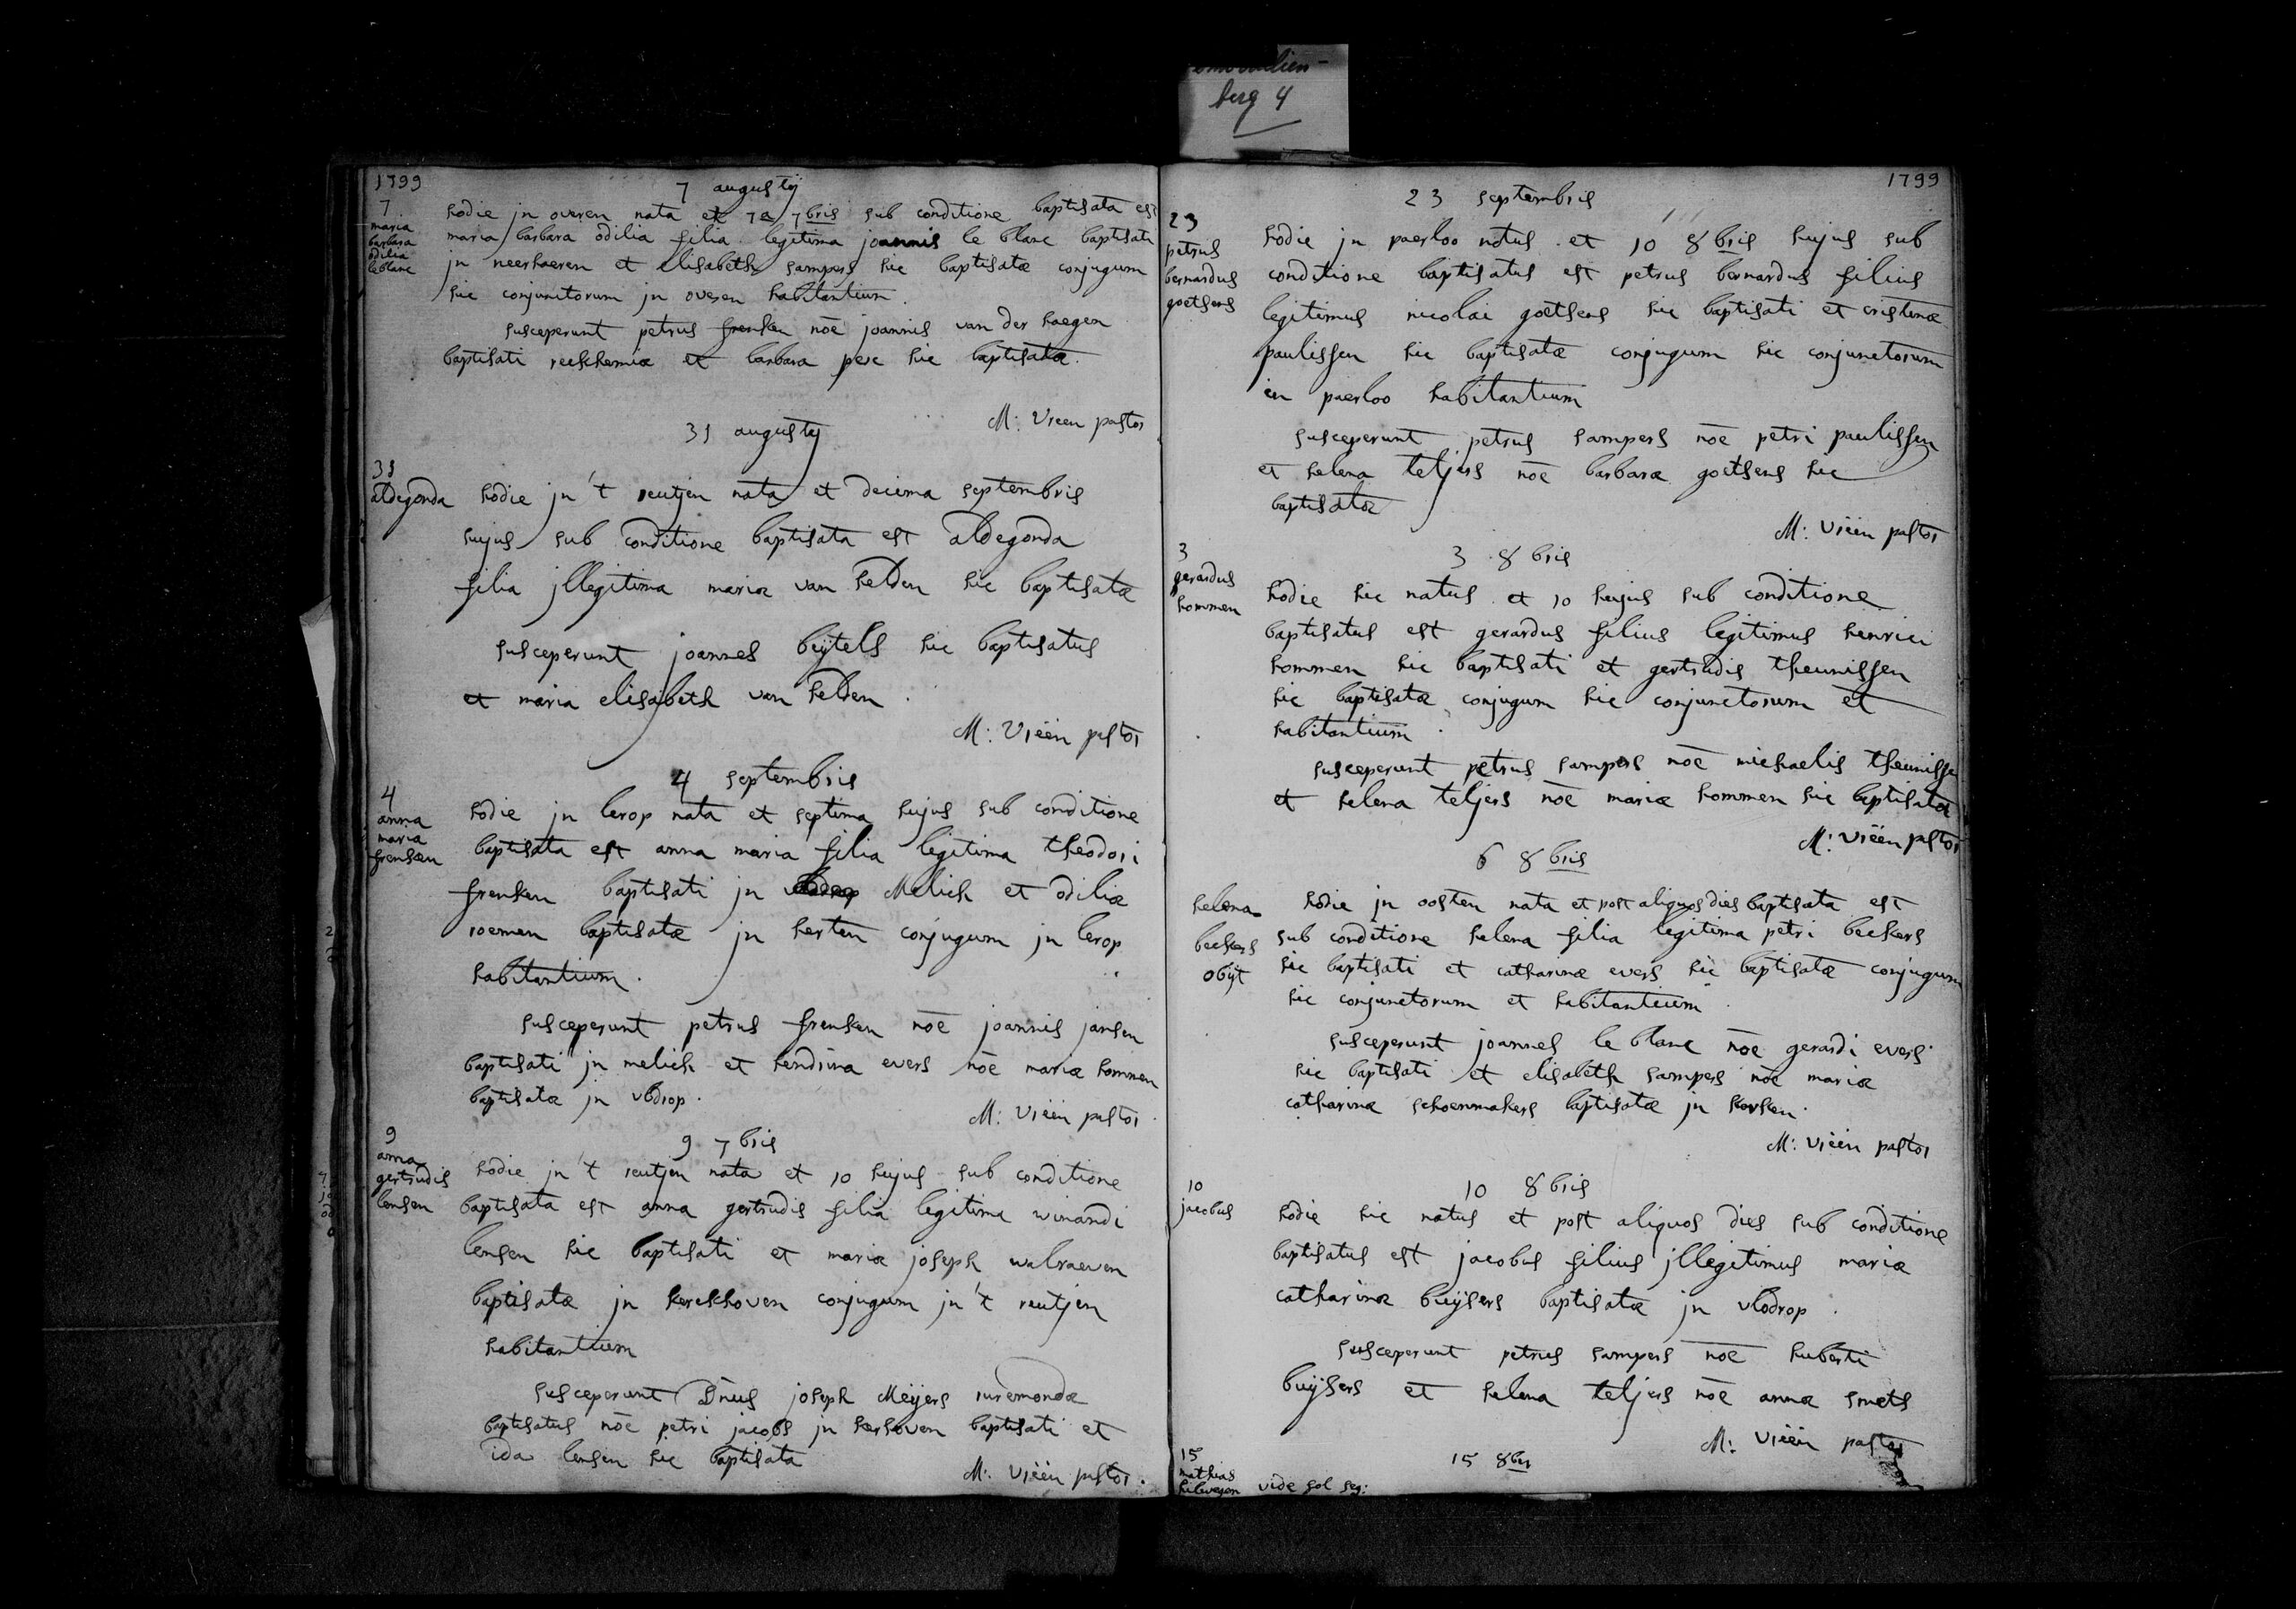 berg 4
1799
7 augustij
7
maria
barbara
odilia
le blanc
hodie jn overen nata et 7a 7bris sub conditione baptisata est
maria barbara odilia filia legitima joannis le blanc baptisati
jn neerhaeren et elisabeth sampers hic baptisatæ conjugum
hic conjunctorum jn overen habitantium.
susceperunt petrus frenken nōe joannis van der haegen
baptisati reckhemiæ et barbara pex hic baptisata.
M: Vieen pastor
31 augustij
31
aldegonda
hodie jn 't reutjen nata et decima septembris
hujus sub conditione baptisata est aldegonda
filia jllegitima mariæ van helden hic baptisatæ
susceperunt joannes beijtels hic baptisatus
et maria elisabeth van helden.
M: Viëën pastor
4 septembris
4
anna
maria
frenken
hodie jn lerop nata et septima hujus sub conditione
baptisata est anna maria filia legitima theodori
frenken baptisati jn Melich et odiliæ
roemen baptisatæ jn herten conjugum jn lerop
habitantium.
susceperunt petrus frenken nōe joannis jansen
baptisati jn melich et hendrina evers nōe mariæ hommen
baptisatæ jn vlodrop.
M: Viëën pastor
9 7bris
9
anna
gertrudis
lensen
hodie jn 't reutjen nata et 10 hujus sub conditione
baptisata est anna gertrudis filia legitima winandi
lensen hic baptisati et mariæ joseph walraeven
baptisatæ jn kerckhoven conjugum jn 't reutjen
habitantium
susceperunt Dnus joseph Meijers ruremondæ
baptisatus nōe petri jacobs jn kerkoven baptisati et
ida lensen hic baptisata
M: Viëën pastor.
1799
23 septembris
23
petrus
bernardus
goetsens
hodie jn paerloo natus et 10 8bris hujus sub
conditione baptisatus est petrus bernardus filius
legitimus nicolai goetsens hic baptisati et cristinæ
paulissen hic baptisatæ conjugum hic conjunctorum
in paerloo habitantium
susceperunt petrus sampers nōe petri paulissen
et helena teljers nōe barbaræ goetsens hic
baptisatæ
M: Viëën pastor
3 8bris
3
gerardus
hommen
hodie hic natus et 10 hujus sub conditione
baptisatus est gerardus filius legitimus henrici
hommen hic baptisati et gertrudis theunissen
hic baptisatæ conjugum hic conjunctorum et
habitantium.
susceperunt petrus sampers nōe michaelis theunissen
et helena teljers nōe mariæ hommen hic baptisatæ
M: Viëën pastor
6 8bris
helena
beckers
obijt
hodie jn oosten nata et post aliquos dies baptisata est
sub conditione helena filia legitima petri beckers
hic baptisati et catharinæ evers hic baptisatæ conjugum
hic conjunctorum et habitantium
susceperunt joannes le blanc nōe gerardi evers
hic baptisati et elisabeth sampers nōe mariæ
catharinæ schoenmakers baptisatæ jn
M: Viëën pastor
10 8bris
10
jacobus
hodie hic natus et post aliquos dies sub conditione
baptisatus est jacobus filius jllegitimus mariæ
catharinæ buijsers baptisatæ jn vlodrop.
susceperunt petrus sampers nōe huberti
buijsers et helena teljers nōe annæ smets
M: Viëën pastor
15 8bris
15
mathias
vide fol seq: